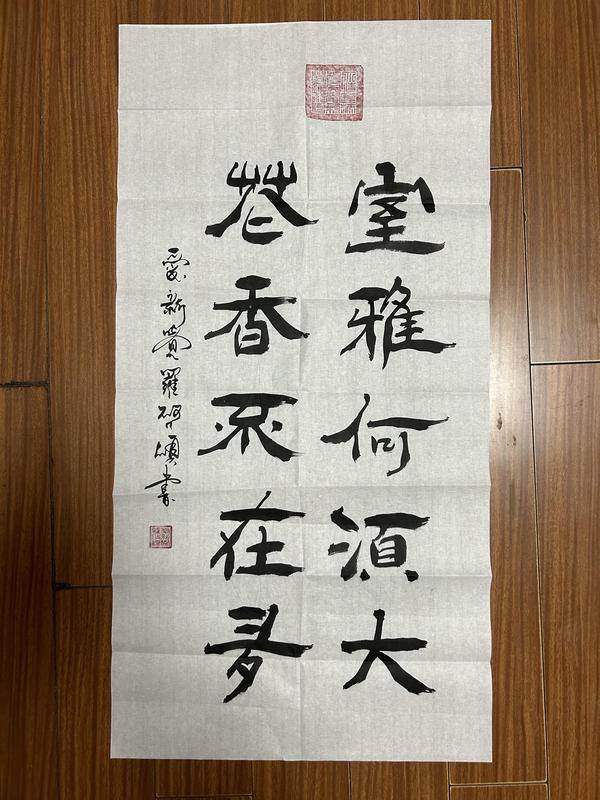 室雅何須大
花香不在多
愛新覺羅硏頌書